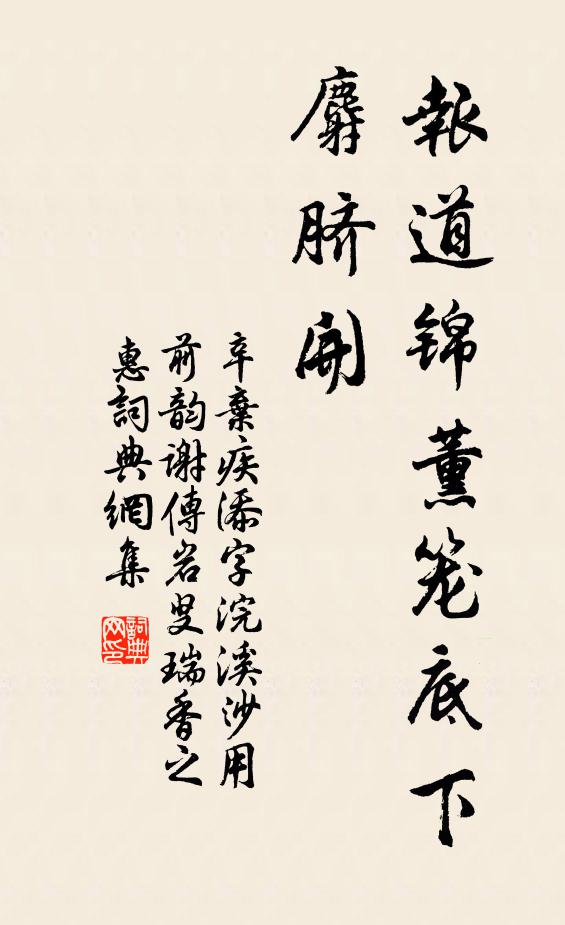 報道锦薰笼底下
麝脐開
辛棄疾添字浣溪沙用
前韵謝傅岩叟瑞香之
惠詞典網集
詞典网印